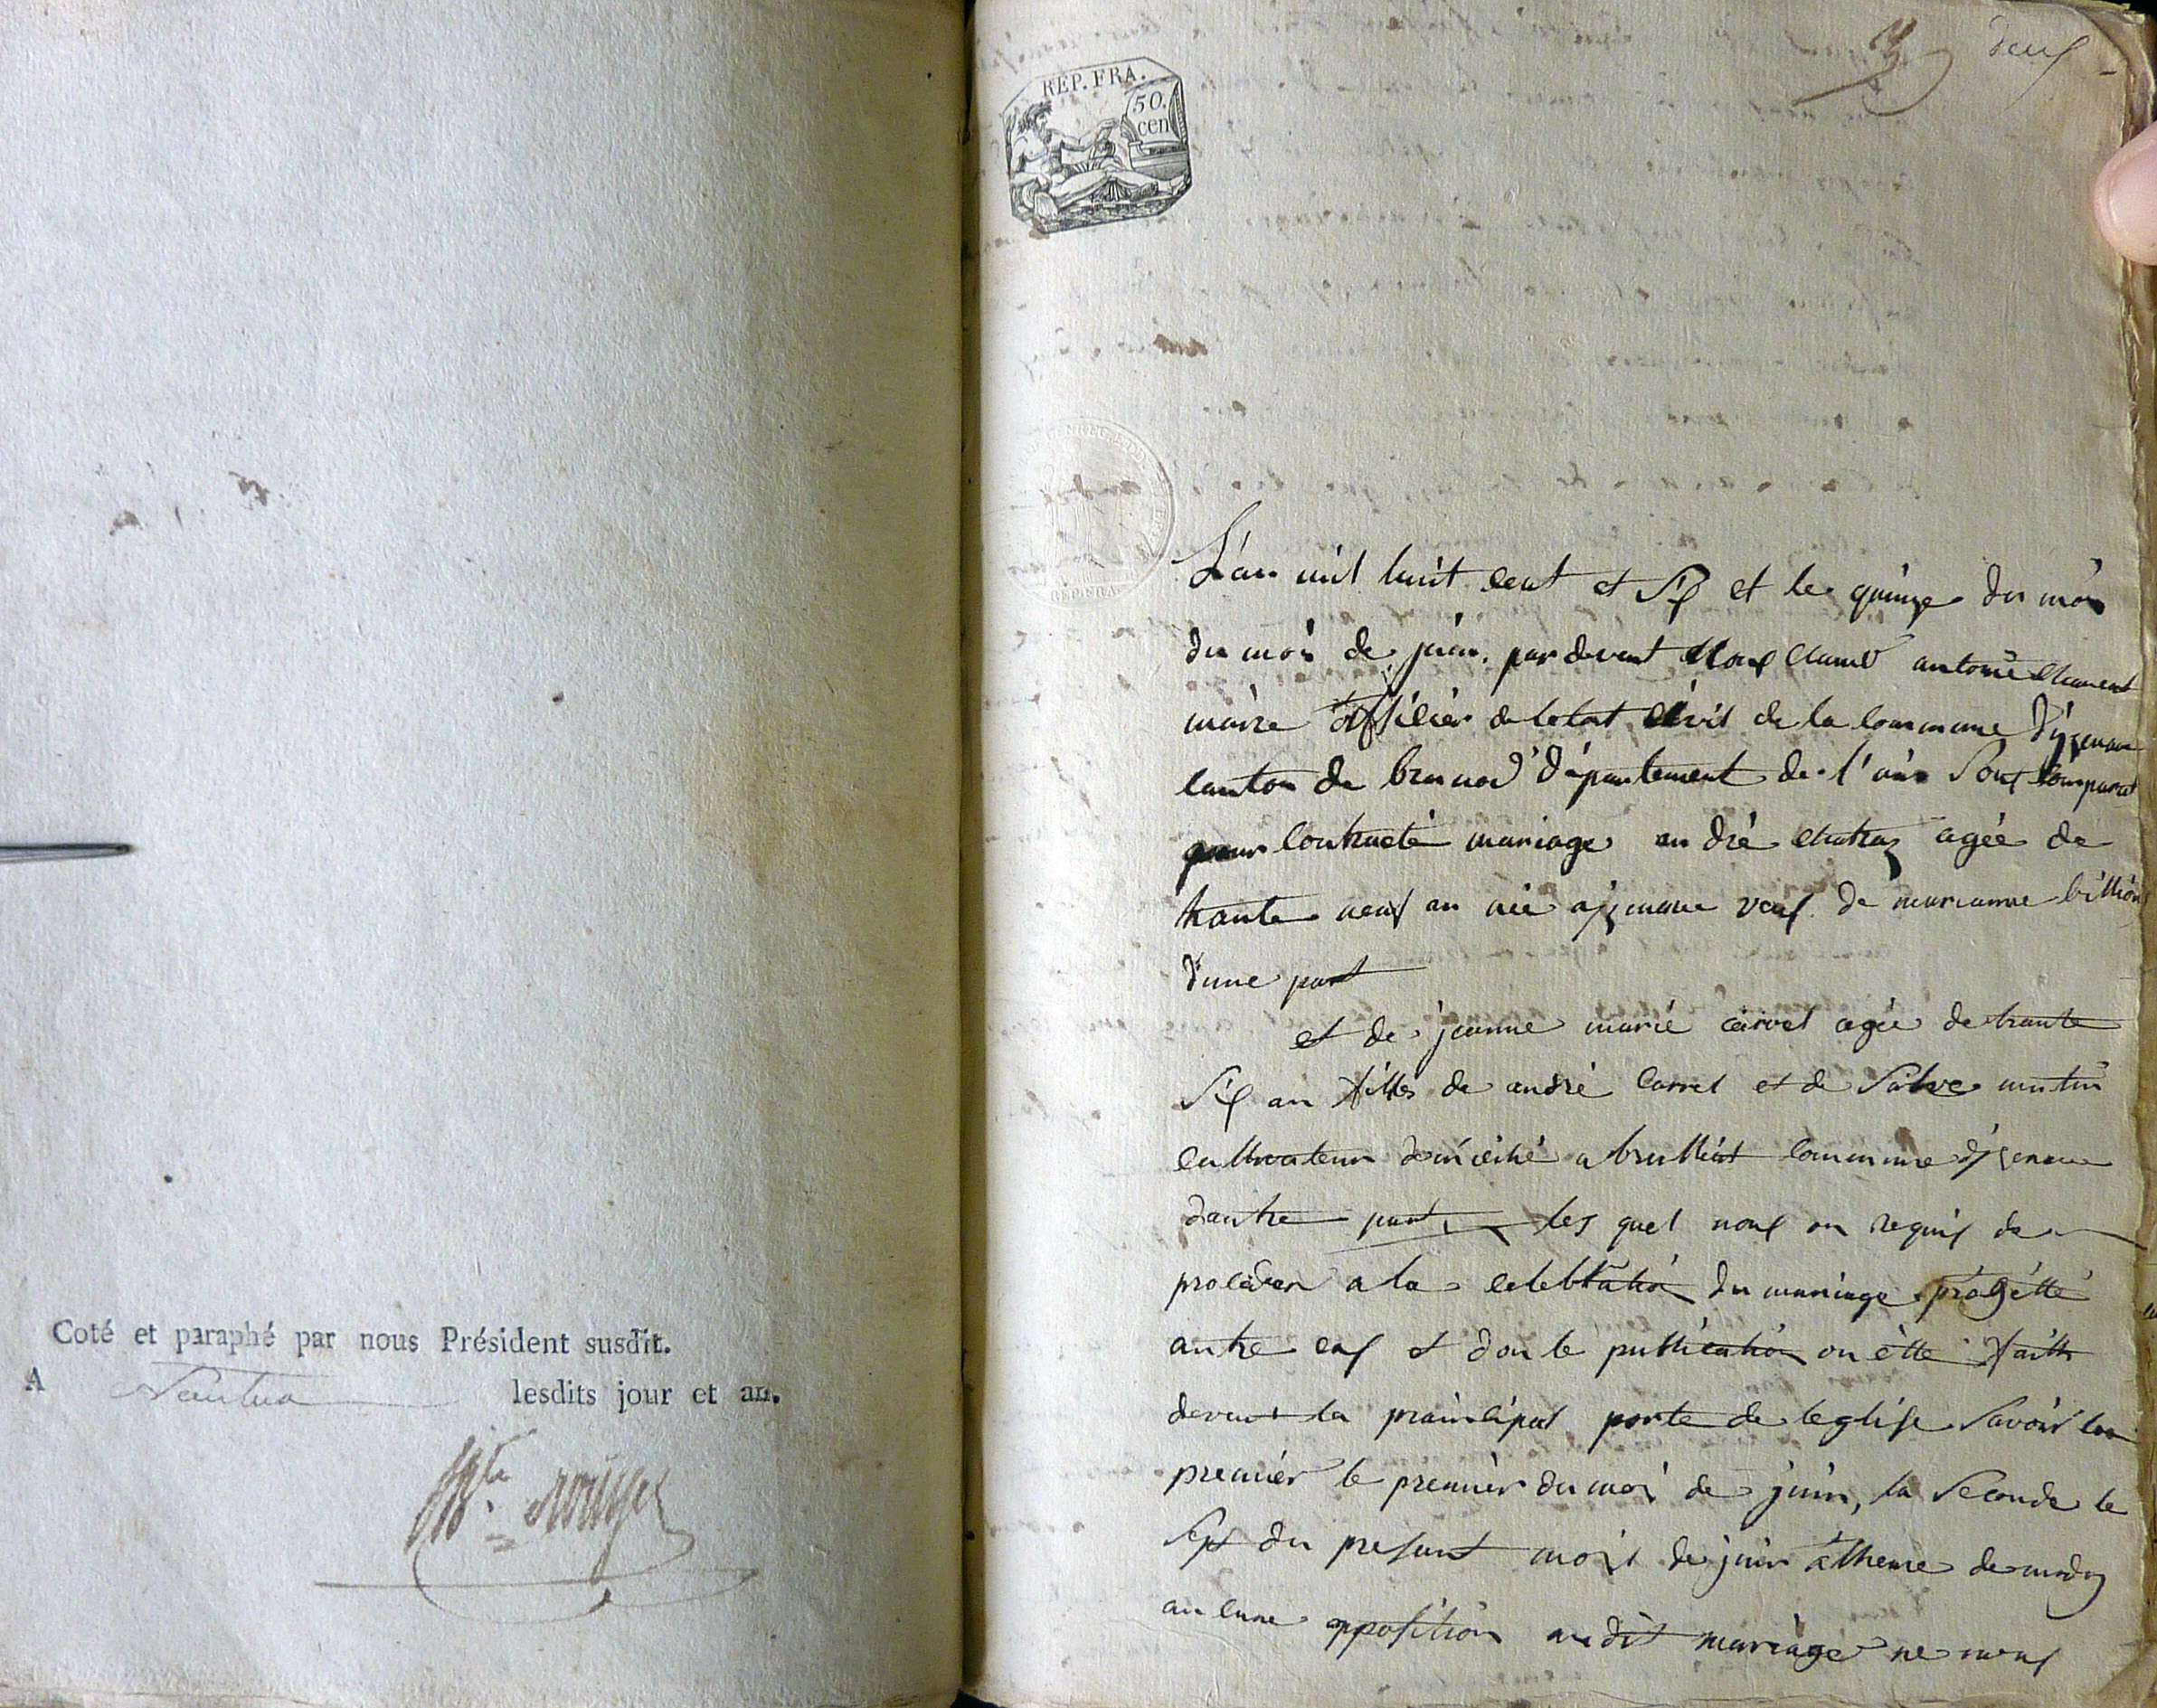 Coté et paraphé par nous Président susdit.
A Nantua lesdits jour et an.
REP. FRA.
50.
cen
deux
REP. FRA.
L'an mil huit cent et six et le quinze du mois
du mois de juin. par devant Nous Claude antoine
maire officier de letat civil de la Commune d'izenave
canton de brenod département de l'ain Sont comparut
pour contracté mariage andré chatraz agée de
trante neuf an née a izenave veuf de marianne billion
d'une part
et de jeanne marie carrel agée de trante
Six an fille de andré Carrel et de
cultivateur domicilié a commune d'izenave
dautre part, les quel nous on requis de
proceder a la celebration du mariage progétté
antre eux et don le publication on étté faitte
devant la prainsipal porte de leglise Savoir la
premier le premier du moi de juin, la Seconde le
du presant mois de juin a lheure de midy
aucune opposition audit mariage ne nous